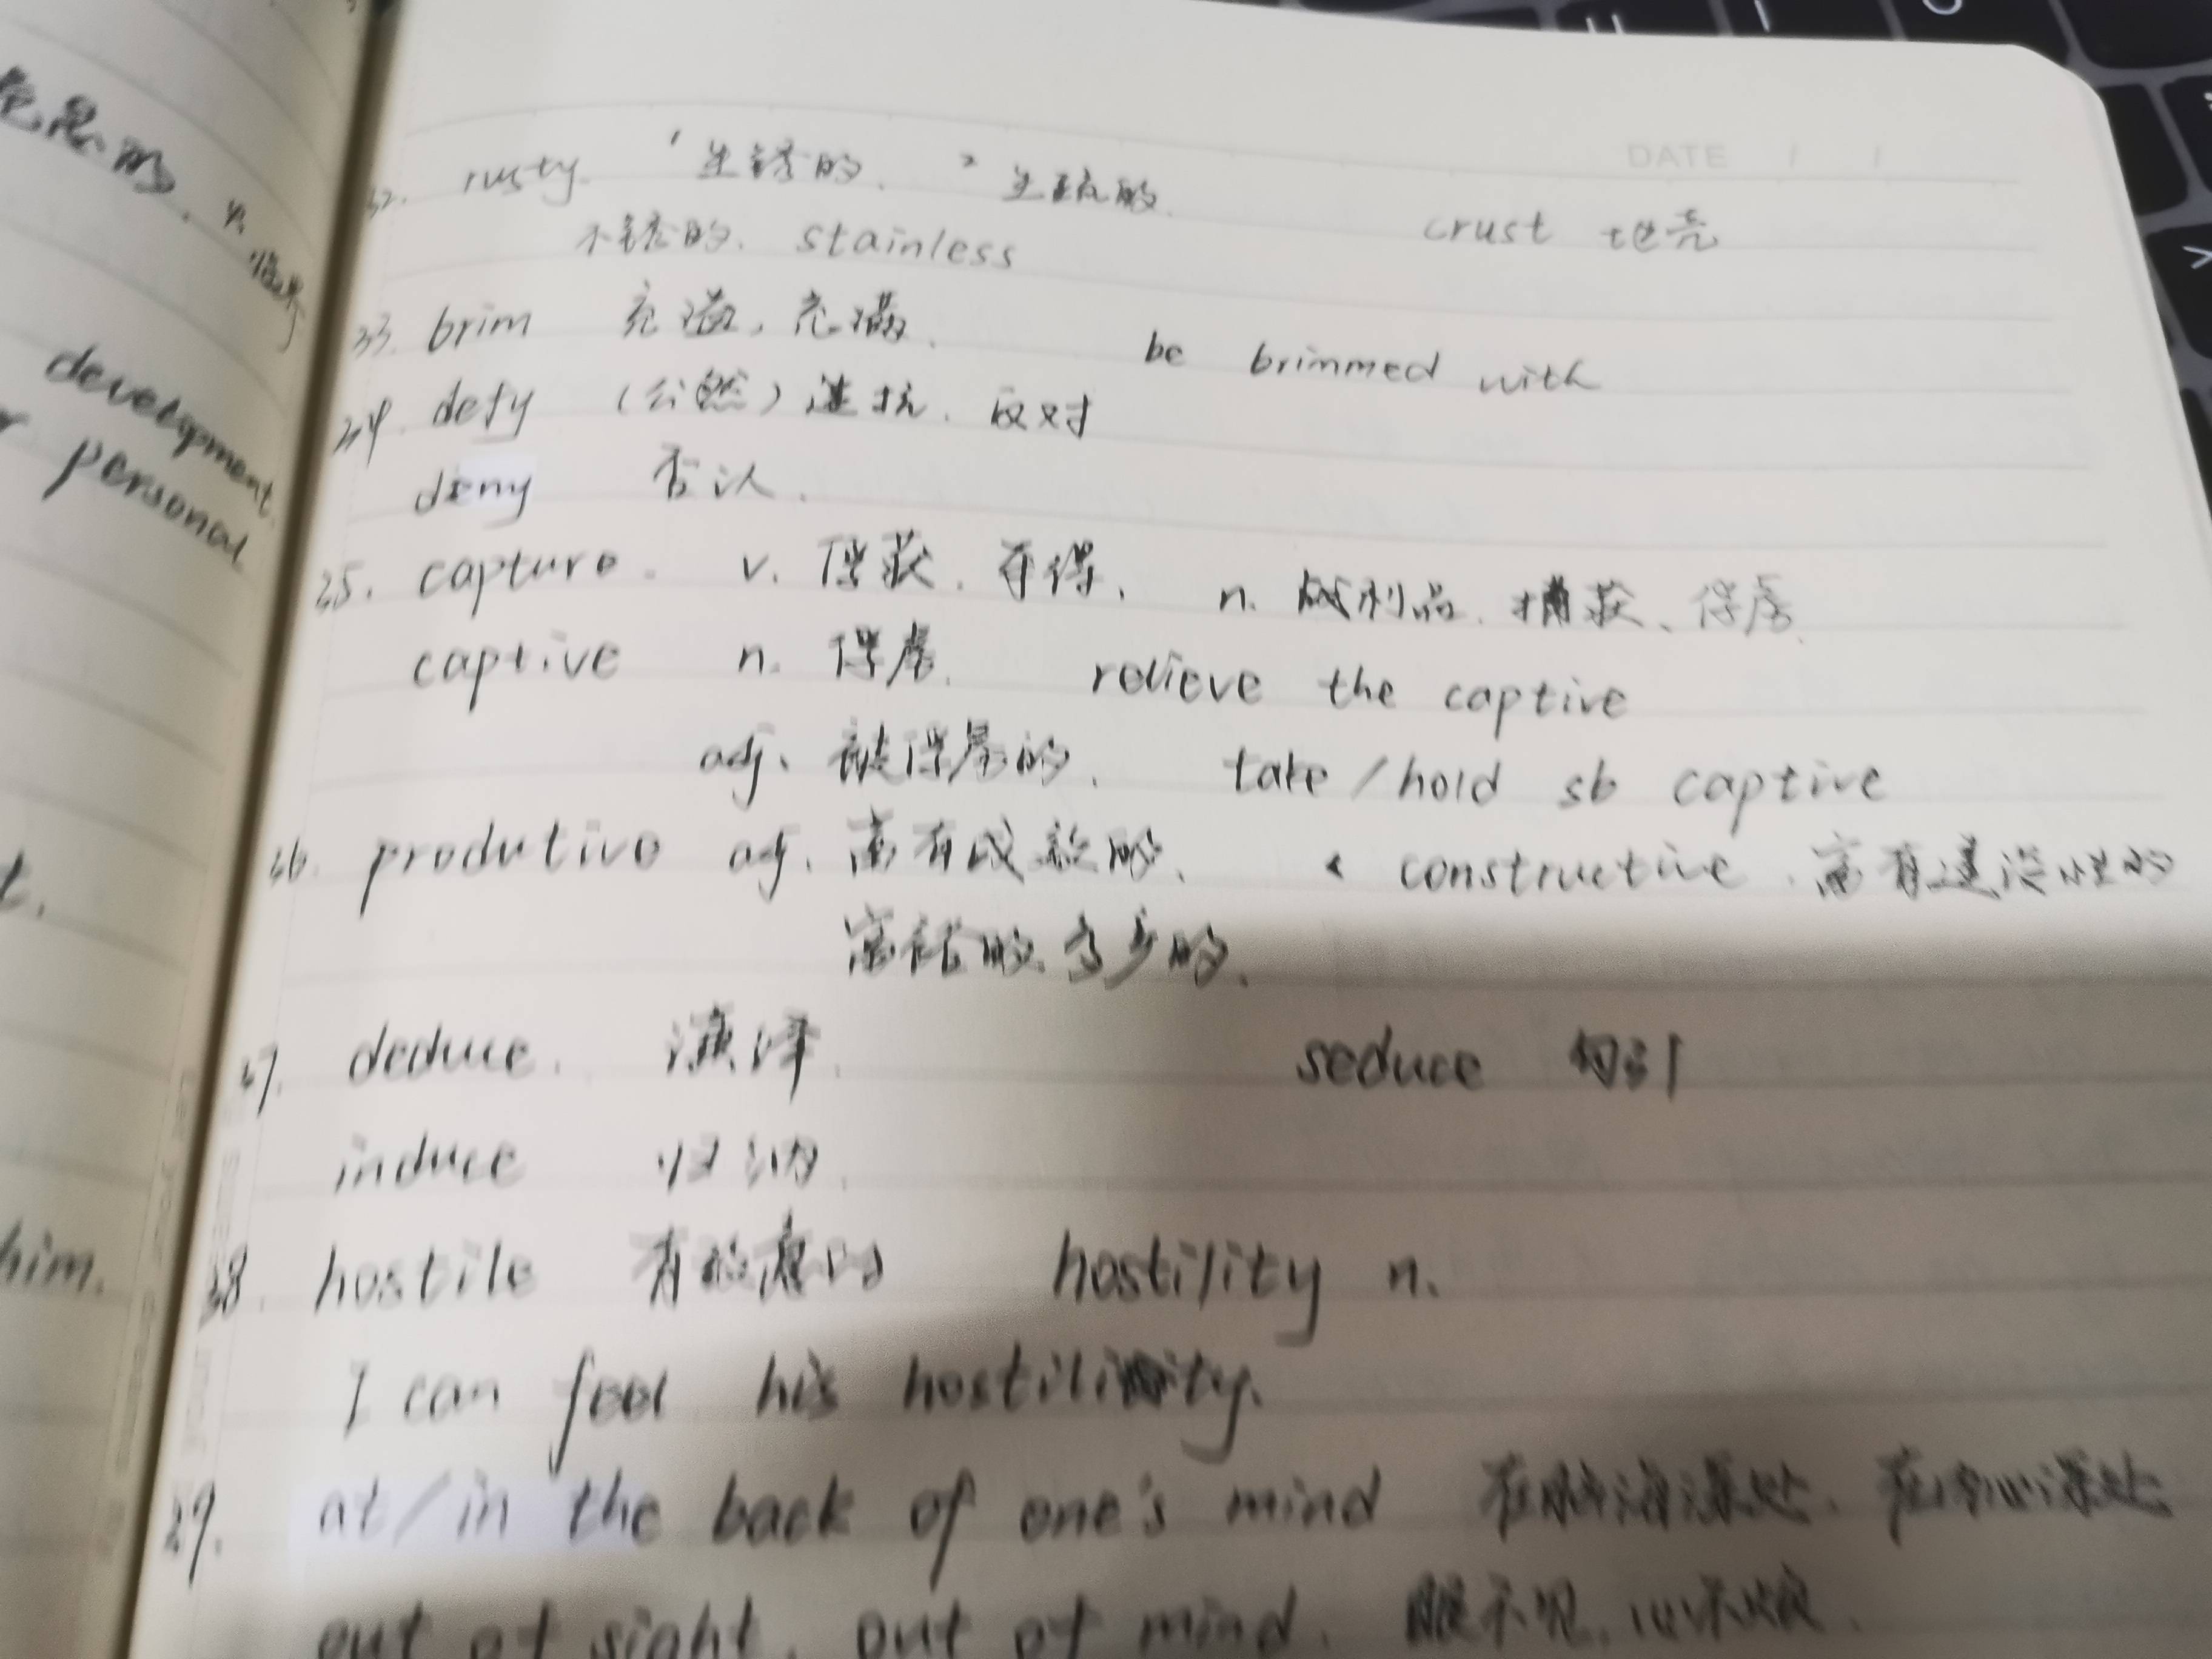 DATE / /
32. rusty. 1 生锈的. 2 生疏的.
不锈的. stainless crust 地壳
33. brim 充溢, 充满. be brimmed with
34. defy (公然) 违抗. 反对
deny 否认.
35. capture. v. 俘获. 夺得. n. 战利品. 捕获、俘虏.
captive n. 俘虏. relieve the captive
adj. 被俘虏的. take/hold sb captive
36. produtive adj. 富有成效的. constructive. 富有建设性的
富裕的 多产的.
37. deduce. 演绎. seduce 勾引
induce 归纳.
38. hostile 有敌意的 hostility n.
I can feel his hostility.
39. at/in the back of one's mind 在脑海深处. 在内心深处
out of sight, out of mind. 眼不见, 心不烦.
development.
personal
t.
him.